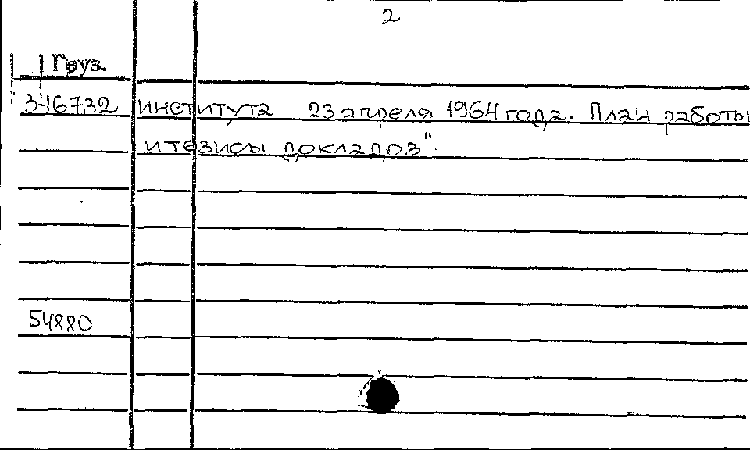 2
Груз.
3-16732 института 23 апреля 1964 года. План работы
и тезисы докладов".
54880